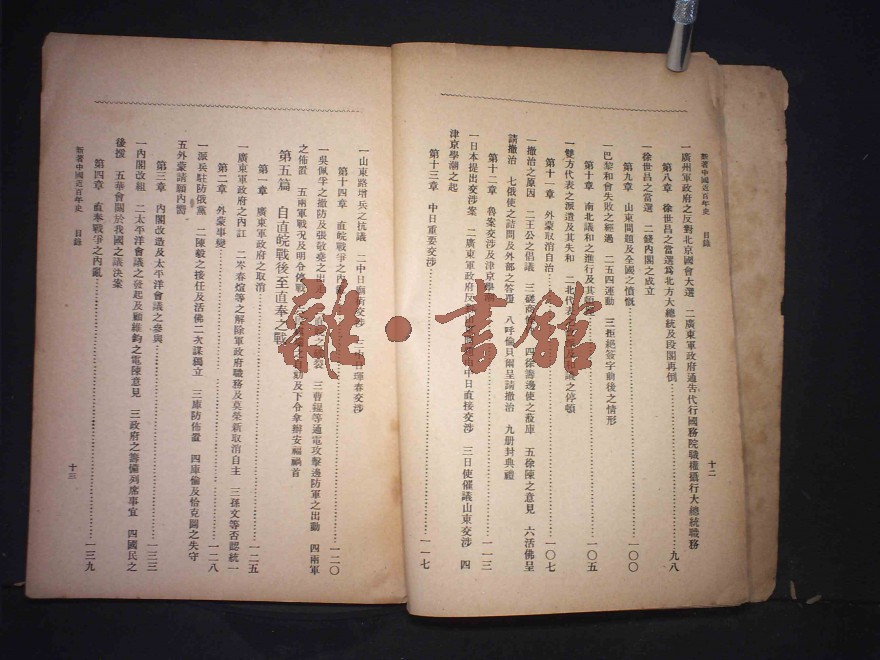 新著中國近百年史 目錄 十二
一廣州軍政府之反對北京國會大選 二廣東軍政府通告代行國務院職權攝行大總統職務
第八章 徐世昌之當選爲北方大總統及段閣再倒 九八
一徐世昌之當選 二錢內閣之成立
第九章 山東問題及全國之憤慨 一〇〇
一巴黎和會失敗之經過 二五四運動 三拒絕簽字前後之情形
第十章 南北議和之進行及其 一〇五
一雙方代表之派遣及其失和 二北代表 議之停頓
第十一章 外蒙取消自治 一〇七
一撤治之原因 二王公之倡議 三磋商 四徐籌邊使之蒞庫 五徐陳之意見 六活佛呈
請撤治 七俄使之詰問及外部之答覆 八呼倫貝爾呈請撤治 九册封典禮
第十二章 魯案交涉及津京學潮 一一三
一日本提出交涉案 二廣東軍政府反 中日直接交涉 三日使催議山東交涉 四
津京學潮之起
第十三章 中日重要交涉 一一七
一山東路增兵之抗議 二中日 交涉 三 琿春交涉
第十四章 直皖戰爭之內 一二〇
一吳佩孚之撤防及張敬堯之出走 裂 三曹錕等通電攻擊邊防軍之出動 四兩軍
之佈置 五兩軍戰况及明令停戰 動及下令拿辦安福禍首
第五篇 自直皖戰後至直奉之戰
第一章 廣東軍政府之取消 一二五
一廣東軍政府之內訌 二岑春煊等之解除軍政府職務及莫榮新取消自主 三孫文等否認統一
第二章 外蒙事變 一二八
一派兵駐防俄黨 二陳毅之接任及活佛二次謀獨立 三庫防佈置 四庫倫及恰克圖之失守
五外蒙請願內嚮
第三章 內閣改造及太平洋會議之參與 一三三
一內閣改組 二太平洋會議之發起及顧維鈞之電陳意見 三政府之籌備列席事宜 四國民之
後援 五華會關於我國之議決案
第四章 直奉戰爭之內亂 一三九
新著中國近百年史 目錄 十三
雜·書舘